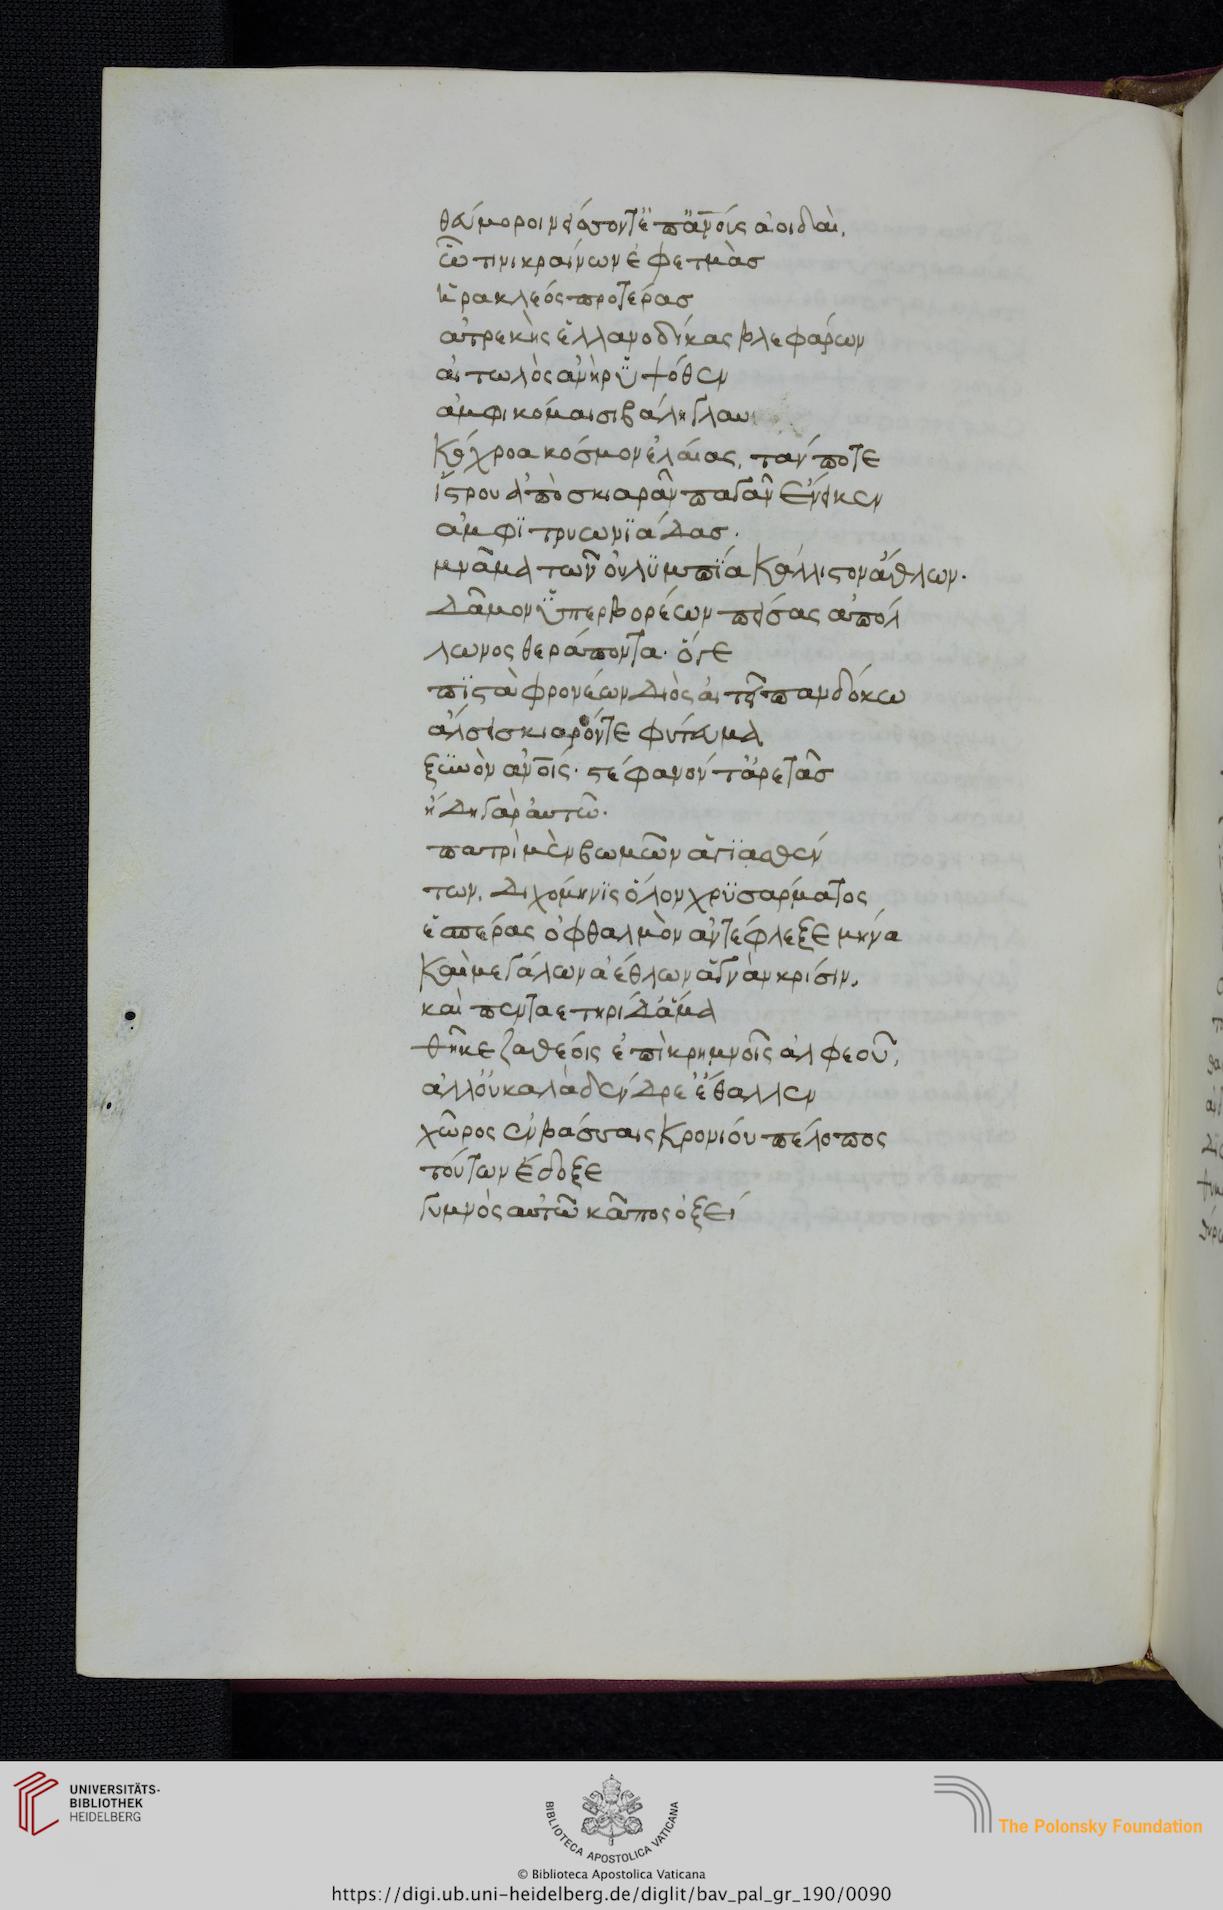 θεύμοροι νείσοντ' ἐπ' ἀνοῖς ἀοιδαὶ,
ὧ τινι κραίνων ἐφετμὰσ
ἡρακλεός προτέρασ
ἀτρεκὴς ἑλλανοδίκας βλεφάρων
αἰτωλὸς ἀνὴρ ὑψόθεν
ἀμφὶ κόμαισι βάλη γλαυ
κόχροα κόσμον ἐλαίας, τάν ποτε
ἴστρου ἀπὸ σκιαρᾶν παγᾶν ἔνεικεν
ἀμφιτρυωνιάδασ·
μνᾶμα τῶν οὐλυμπία κάλλιστον ἄθλων·
Δᾶμον ὑπερβορέων πείσας ἀπόλ
λωνος θεράποντα· ὅγε
πιστὰ φρονέων Διὸς αἴτει πανδόκω
ἄλσει σκιαρόν τε φύτευμα
ξυνὸν ἀνοῖς· στέφανόν τ' ἀρετᾶσ
ἤδη γὰρ αὐτῶ·
πατρὶ μὲν βωμῶν ἁγιασθέν
των, Διχόμηνις ὅλον χρυσάρματος
ἑσπέρας ὀφθαλμὸν ἀντέφλεξε μήνα
καὶ μεγάλων ἀέθλων ἁγνὰν κρίσιν,
καὶ πενταετηρίδ' ἅμα
θῆκε ζαθέοις ἐπὶ κρημνοῖς ἀλφεοῦ,
ἀλλ' οὐ καλὰ δένδρε' ἔθαλλεν
χῶρος ἐν βάσσαις Κρονίου πέλοπος
τούτων ἔδοξε
γυμνὸς αὐτῶ κᾶπος ὀξεί
UNIVERSITÄTS-
BIBLIOTHEK
HEIDELBERG
BIBLIOTECA APOSTOLICA VATICANA
The Polonsky Foundation
© Biblioteca Apostolica Vaticana
https://digi.ub.uni-heidelberg.de/diglit/bav_pal_gr_190/0090